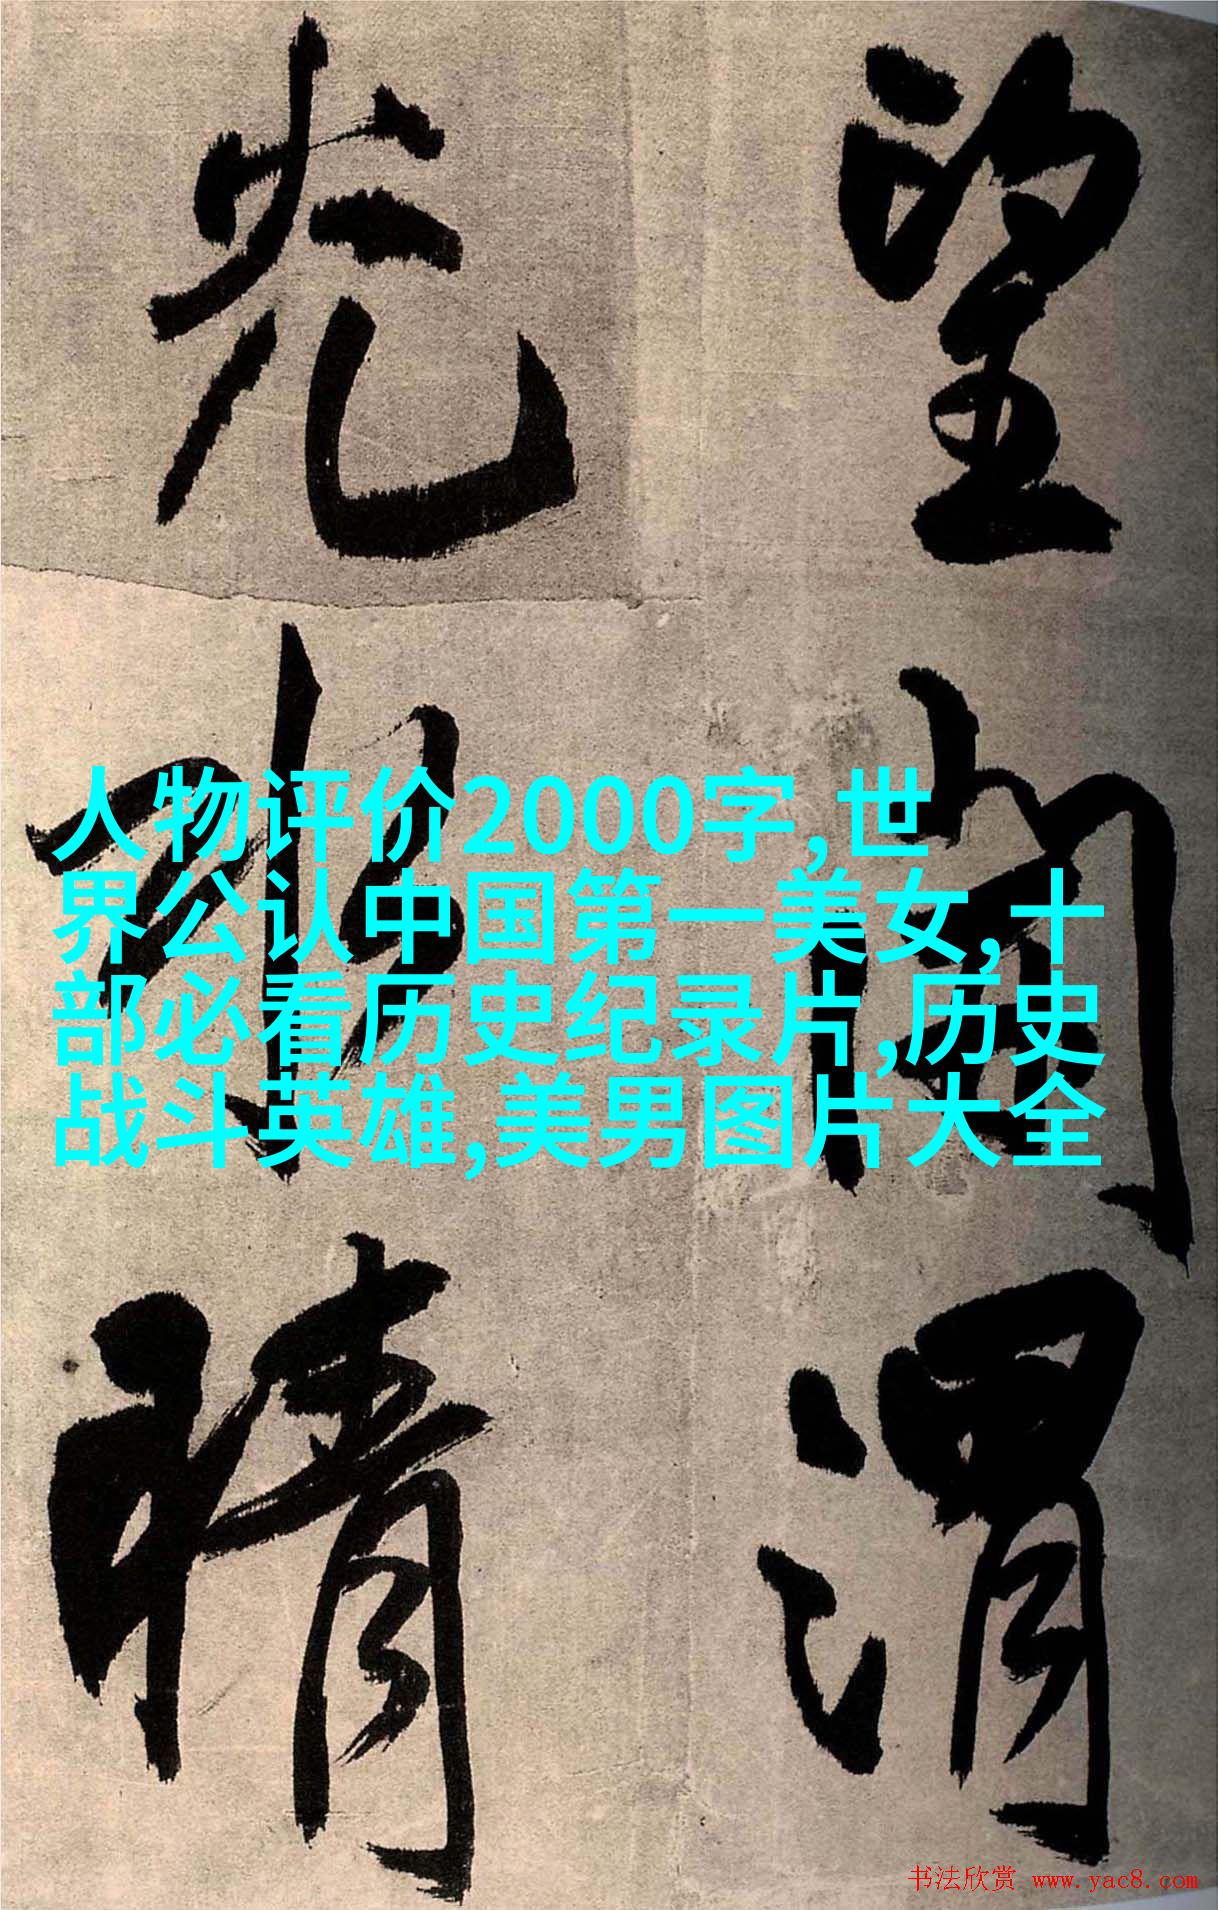 望
渭
光水晴
人物评价2000字,世
界公认中国第一美女,十
部必看历史纪录片,历史
战斗英雄,美男图片大全
书法欣赏 www.yac8.com